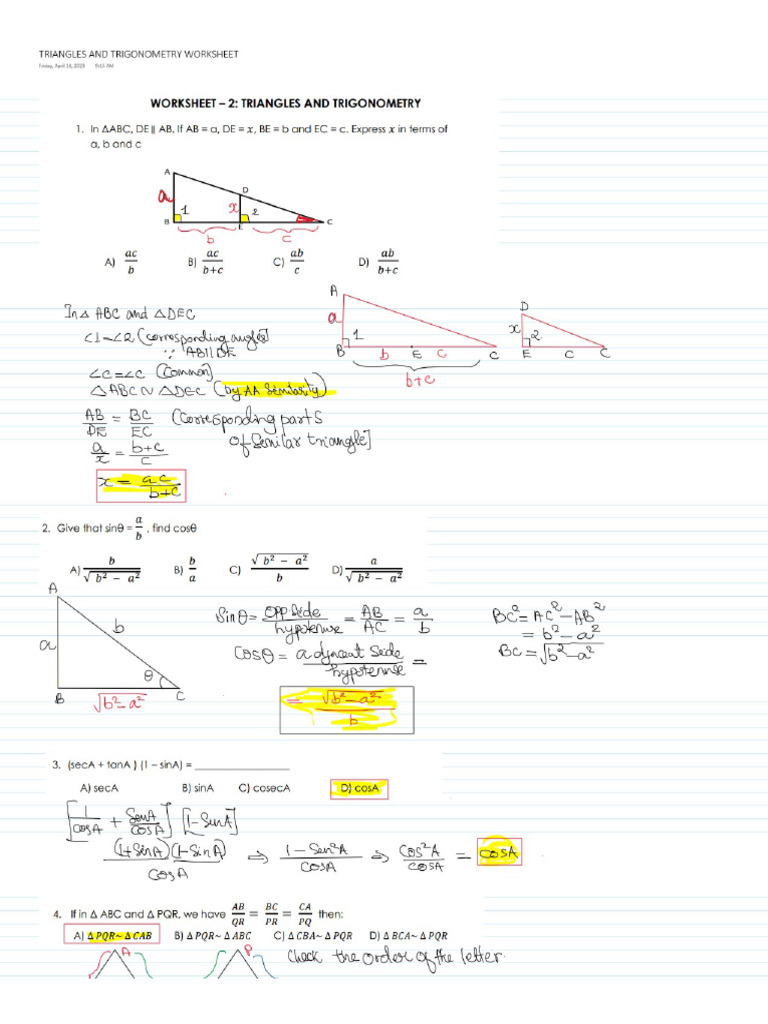 TRIANGLES AND TRIGONOMETRY WORKSHEET
Friday, April 14, 2023 9:15 AM
WORKSHEET – 2: TRIANGLES AND TRIGONOMETRY
1. In ΔABC, DE ∥ AB. If AB = a, DE = x, BE = b and EC = c. Express x in terms of
a, b and c
A
D
a 1 x 2
B E C
b c
A) ac/b B) ac/(b+c) C) ab/c D) ab/(b+c)
A D
a 1 x 2
B b E c C E c C
b+c
In Δ ABC and Δ DEC
∠1=∠2 (corresponding angles]
∵ AB||DE
∠C=∠C (Common]
Δ ABC ~ Δ DEC (by AA Similarity)
AB/DE = BC/EC (Corresponding parts
of Similar triangle]
a/x = b+c/c
x = ac/b+c
2. Give that sinθ = a/b , find cosθ
A) b/√(b² − a²) B) b/a C) √(b² − a²)/b D) a/√(b² − a²)
A
a b
θ
B √b²−a² C
Sinθ = opp Side/hypotenuse = AB/AC = a/b
Cosθ = adjacent Side/hypotenuse =
= √b²−a²/b
BC² = AC² − AB²
= b² − a²
BC = √b²−a²
3. (secA + tanA ) (1 – sinA) = ____________________
A) secA B) sinA C) cosecA D) cosA
[1/cosA + SinA/cosA] [1−SinA]
(1+SinA)(1−SinA)/cosA ⇒ 1−Sin²A/cosA ⇒ Cos²A/cosA = cosA
4. If in Δ ABC and Δ PQR, we have AB/QR = BC/PR = CA/PQ then:
A) Δ PQR~ Δ CAB B) Δ PQR~ Δ ABC C) Δ CBA~ Δ PQR D) Δ BCA~ Δ PQR
A P Check the order of the letter.